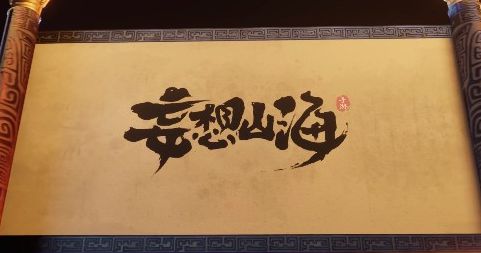 妄想山海